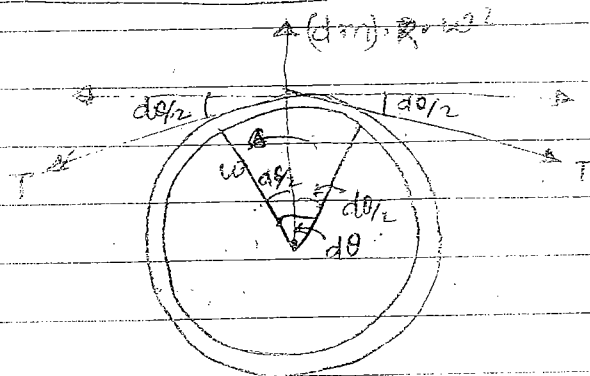 (dm).R.ω²
dθ/2 dθ/2
T T
ω dθ/2 dθ/2
dθ